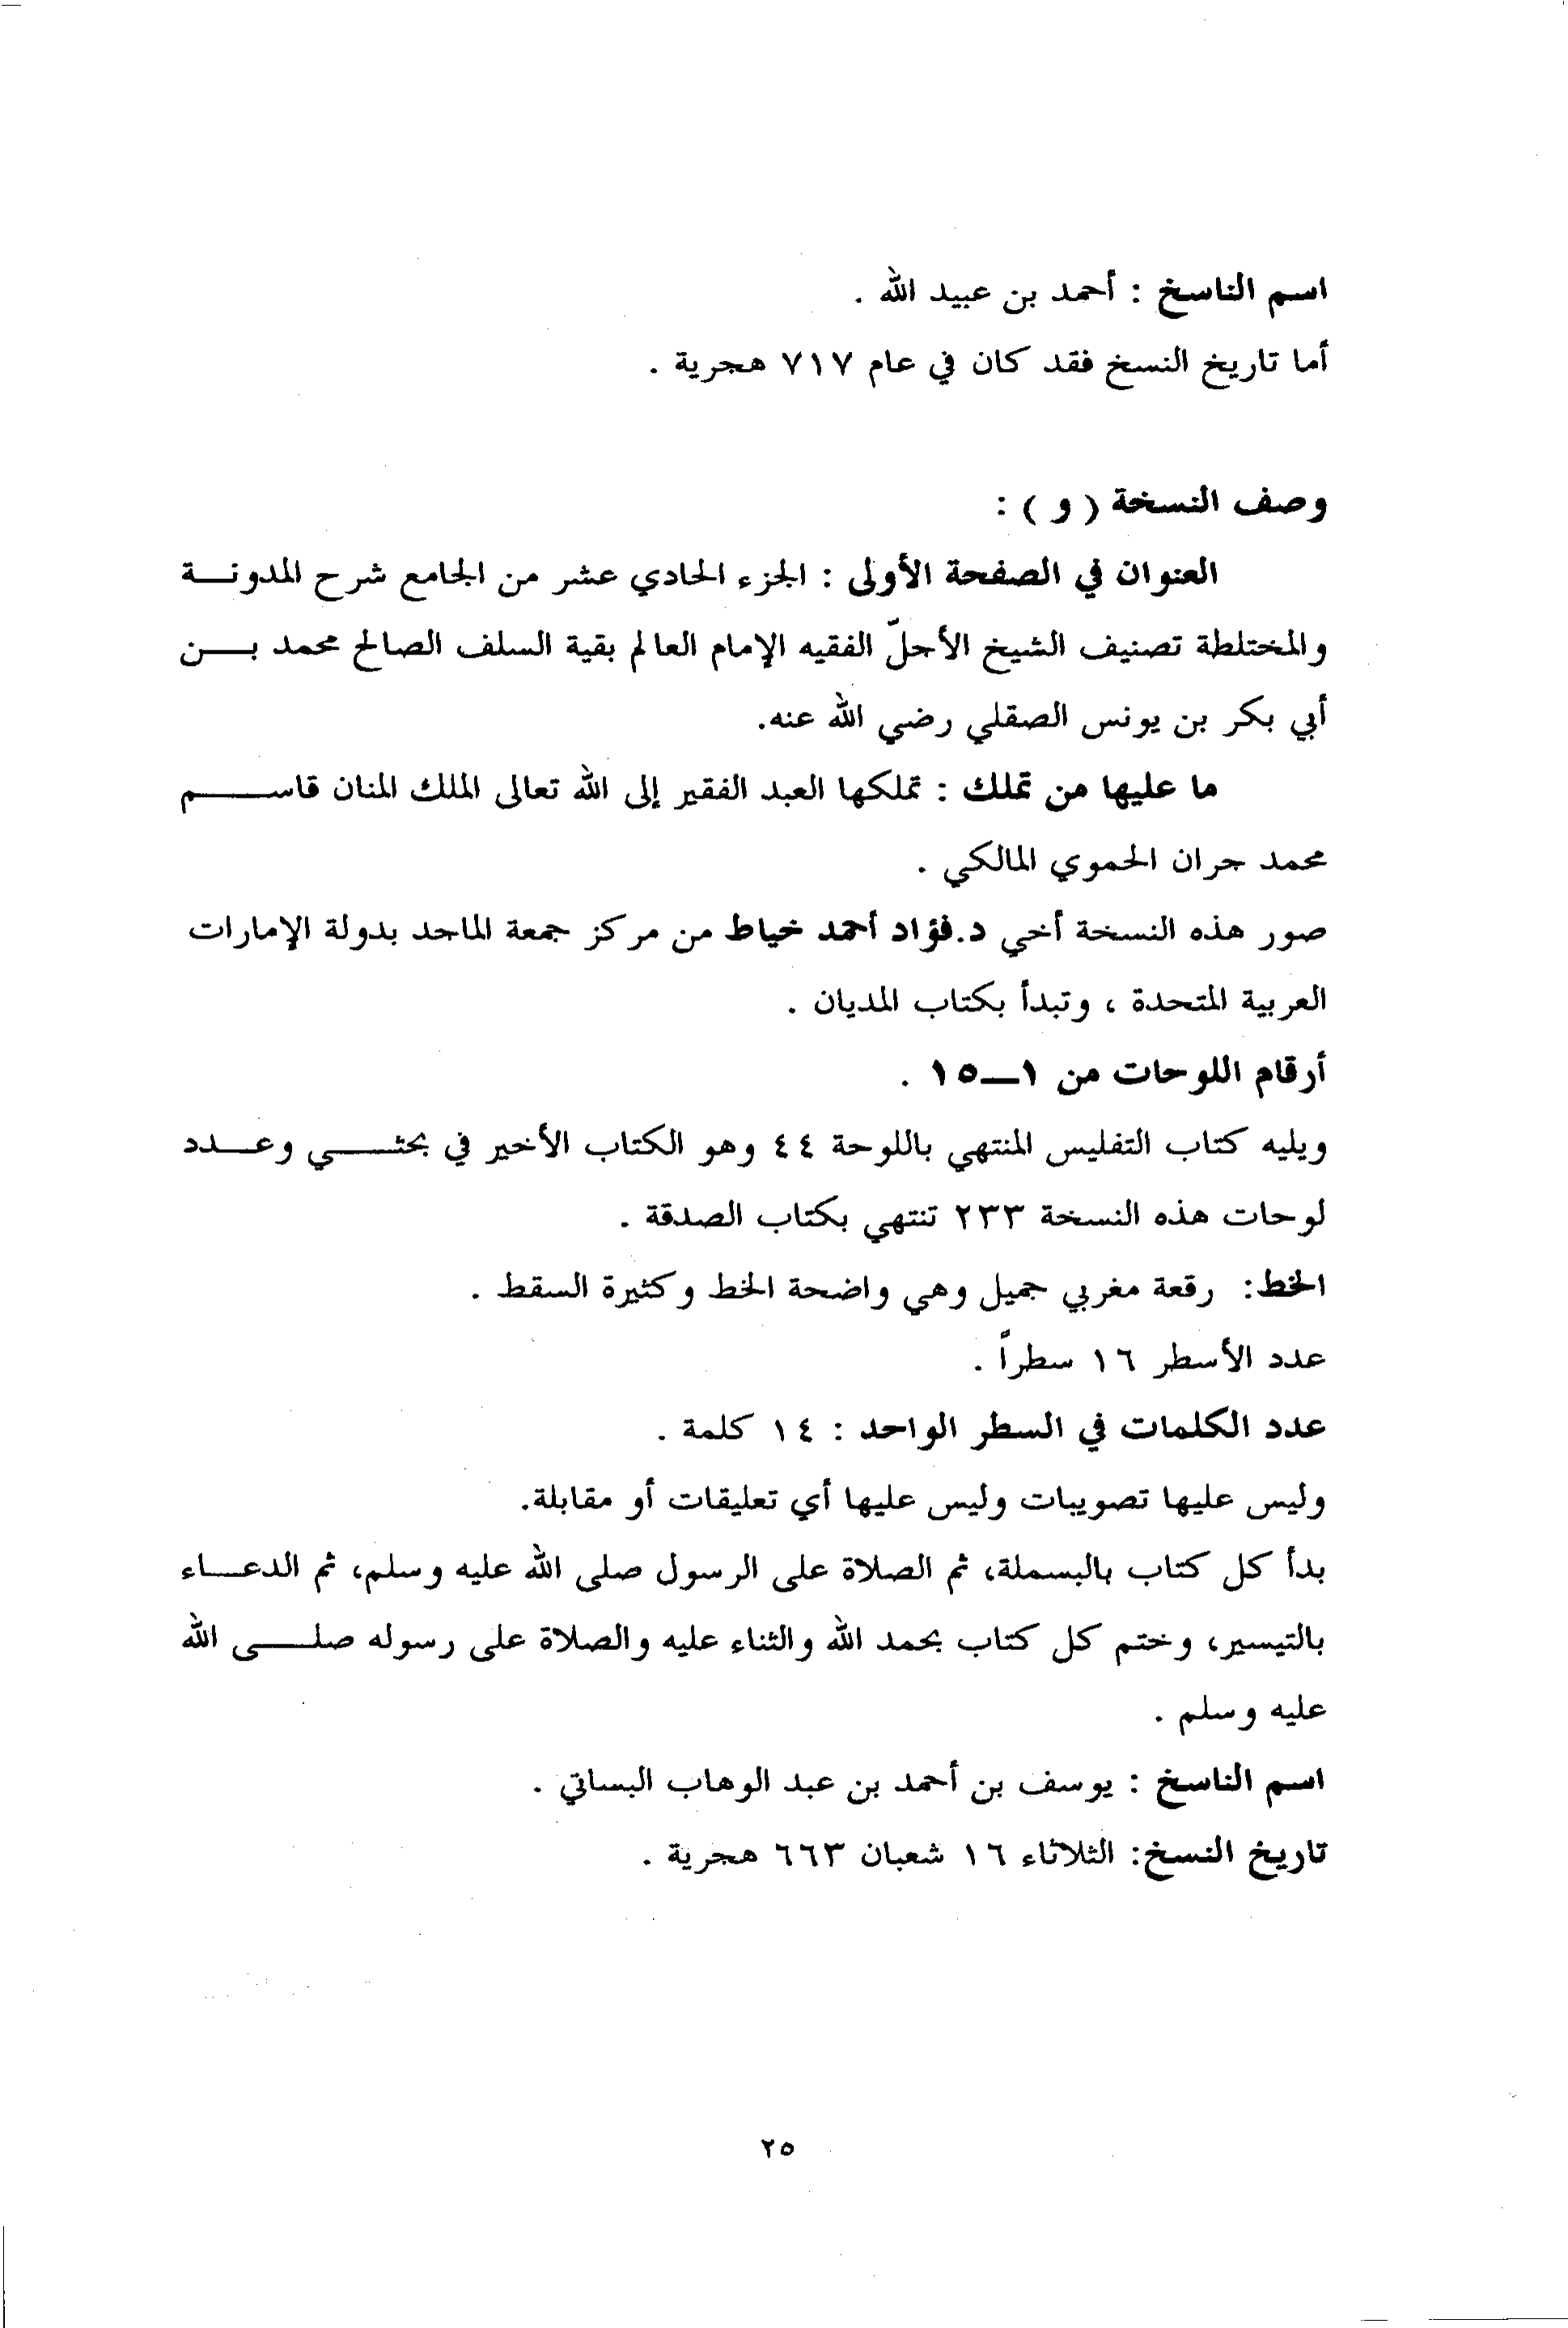 اسم الناسخ : أحمد بن عبيد الله .
أما تاريخ النسخ فقد كان في عام ٧١٧ هجرية .
وصف النسخة ( و ) :
العنوان في الصفحة الأولى : الجزء الحادي عشر من الجامع شرح المدونة
والمختلطة تصنيف الشيخ الأجلّ الفقيه الإمام العالم بقية السلف الصالح محمد بن
أبي بكر بن يونس الصقلي رضي الله عنه.
ما عليها من تملك : تملكها العبد الفقير إلى الله تعالى الملك المنان قاسم
محمد جران الحموي المالكي .
صور هذه النسخة أخي د.فؤاد أحمد خياط من مركز جمعة الماجد بدولة الإمارات
العربية المتحدة ، وتبدأ بكتاب المديان .
أرقام اللوحات من ١ـ١٥ .
ويليه كتاب التفليس المنتهي باللوحة ٤٤ وهو الكتاب الأخير في بحثي وعدد
لوحات هذه النسخة ٢٣٣ تنتهي بكتاب الصدقة .
الخط: رقعة مغربي جميل وهي واضحة الخط وكثيرة السقط .
عدد الأسطر ١٦ سطراً .
عدد الكلمات في السطر الواحد : ١٤ كلمة .
وليس عليها تصويبات وليس عليها أي تعليقات أو مقابلة.
بدأ كل كتاب بالبسملة، ثم الصلاة على الرسول صلى الله عليه وسلم، ثم الدعاء
بالتيسير، وختم كل كتاب بحمد الله والثناء عليه والصلاة على رسوله صلى الله
عليه وسلم .
اسم الناسخ : يوسف بن أحمد بن عبد الوهاب البساتي .
تاريخ النسخ: الثلاثاء ١٦ شعبان ٦٦٣ هجرية .
٢٥